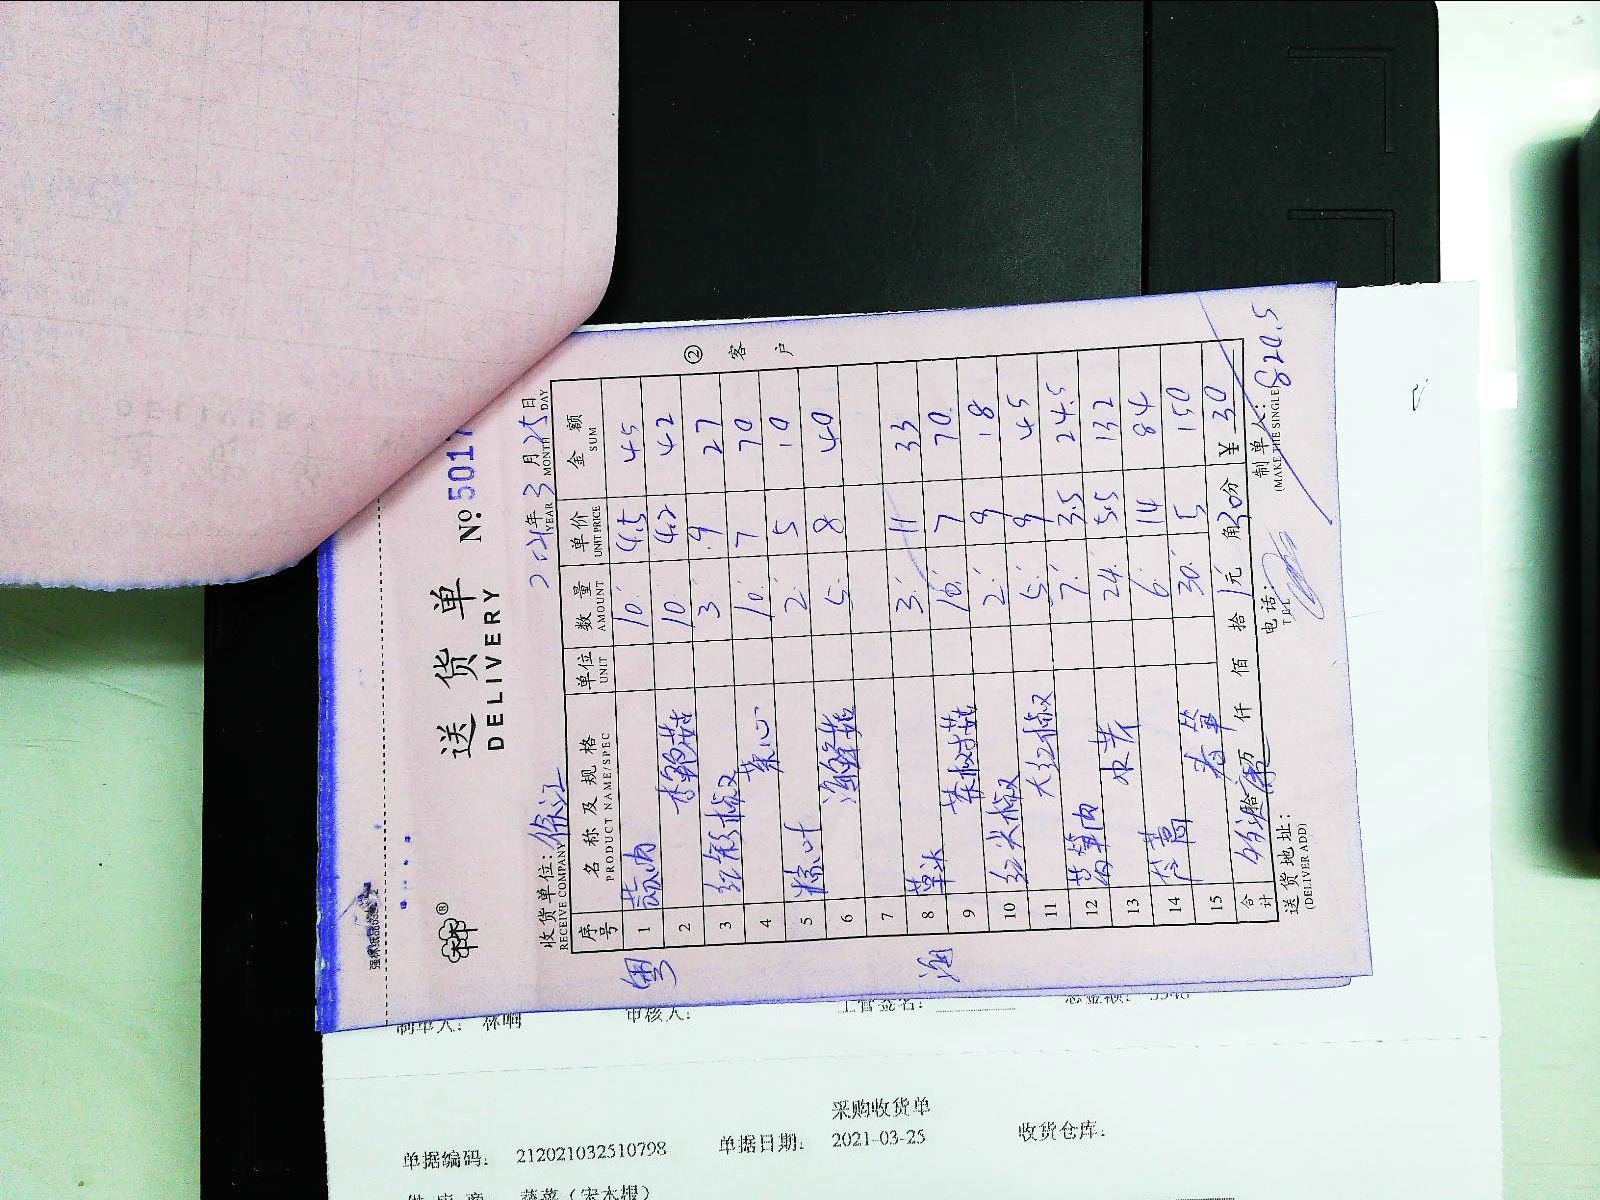 送货单 No:5017
DELIVERY
2021年3月25日
YEAR MONTH DAY
收货单位:徐江
RECEIVE COMPANY
序号 名称及规格 单位 数量 单价 金额
PRODUCT NAME/SPEC UNIT AMOUNT UNIT PRICE SUM
粤
1 10 4.5 45
2 10 4.2 42
3 红彩椒 3 9 27
4 菜心 10 7 70
5 粽叶 2 5 10
6 海鲜菇 5 8 40
7
海
8 草头 3 11 33
9 茶树菇 10 7 70
10 红尖椒 2 9 18
11 大红椒 5 9 45
12 7 3.5 24.5
13 水芹 24 5.5 132
14 6 14 84
15 春笋 30 5 150
合计 拾 万 仟 佰 拾 元 角 30分 ¥ 30
送货地址: 电话: 制单人: 820.5
(DELIVER ADD) TEL (MAKE THE SINGLE)
② 客户
制单人: 林 审核人: 主管签名:
采购收货单
单据编码: 212021032510798 单据日期: 2021-03-25 收货仓库:
供应商 蔬菜(宋本根)